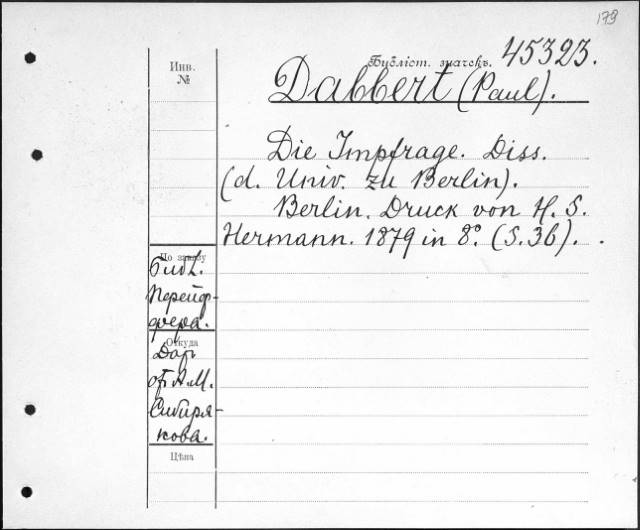 179
Инв.
№
Бубліот. значекъ. 45323.
Dabbert (Paul).
Die Impfrage. Diss.
(d. Univ. zu Berlin).
Berlin. Druck von H. S.
Hermann. 1879 in 8º. (S. 36).
По заказу
Библ.
Пфейф-
фера.
Откуда
Дар
от А. М.
Сибиря-
кова.
Цѣна